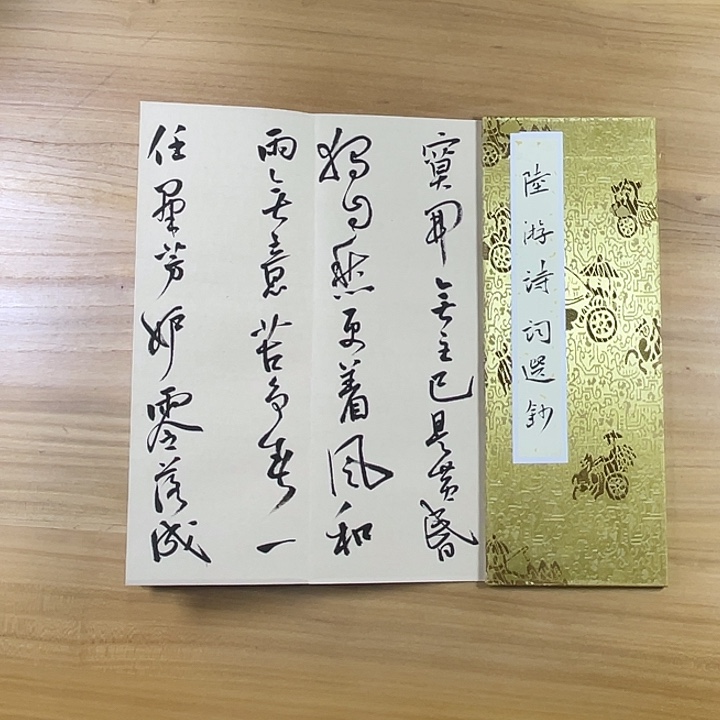 陸游詩詞選鈔
寞開無主已是黄昏
獨自愁更着風和
雨無意苦争春一
任羣芳妒零落成